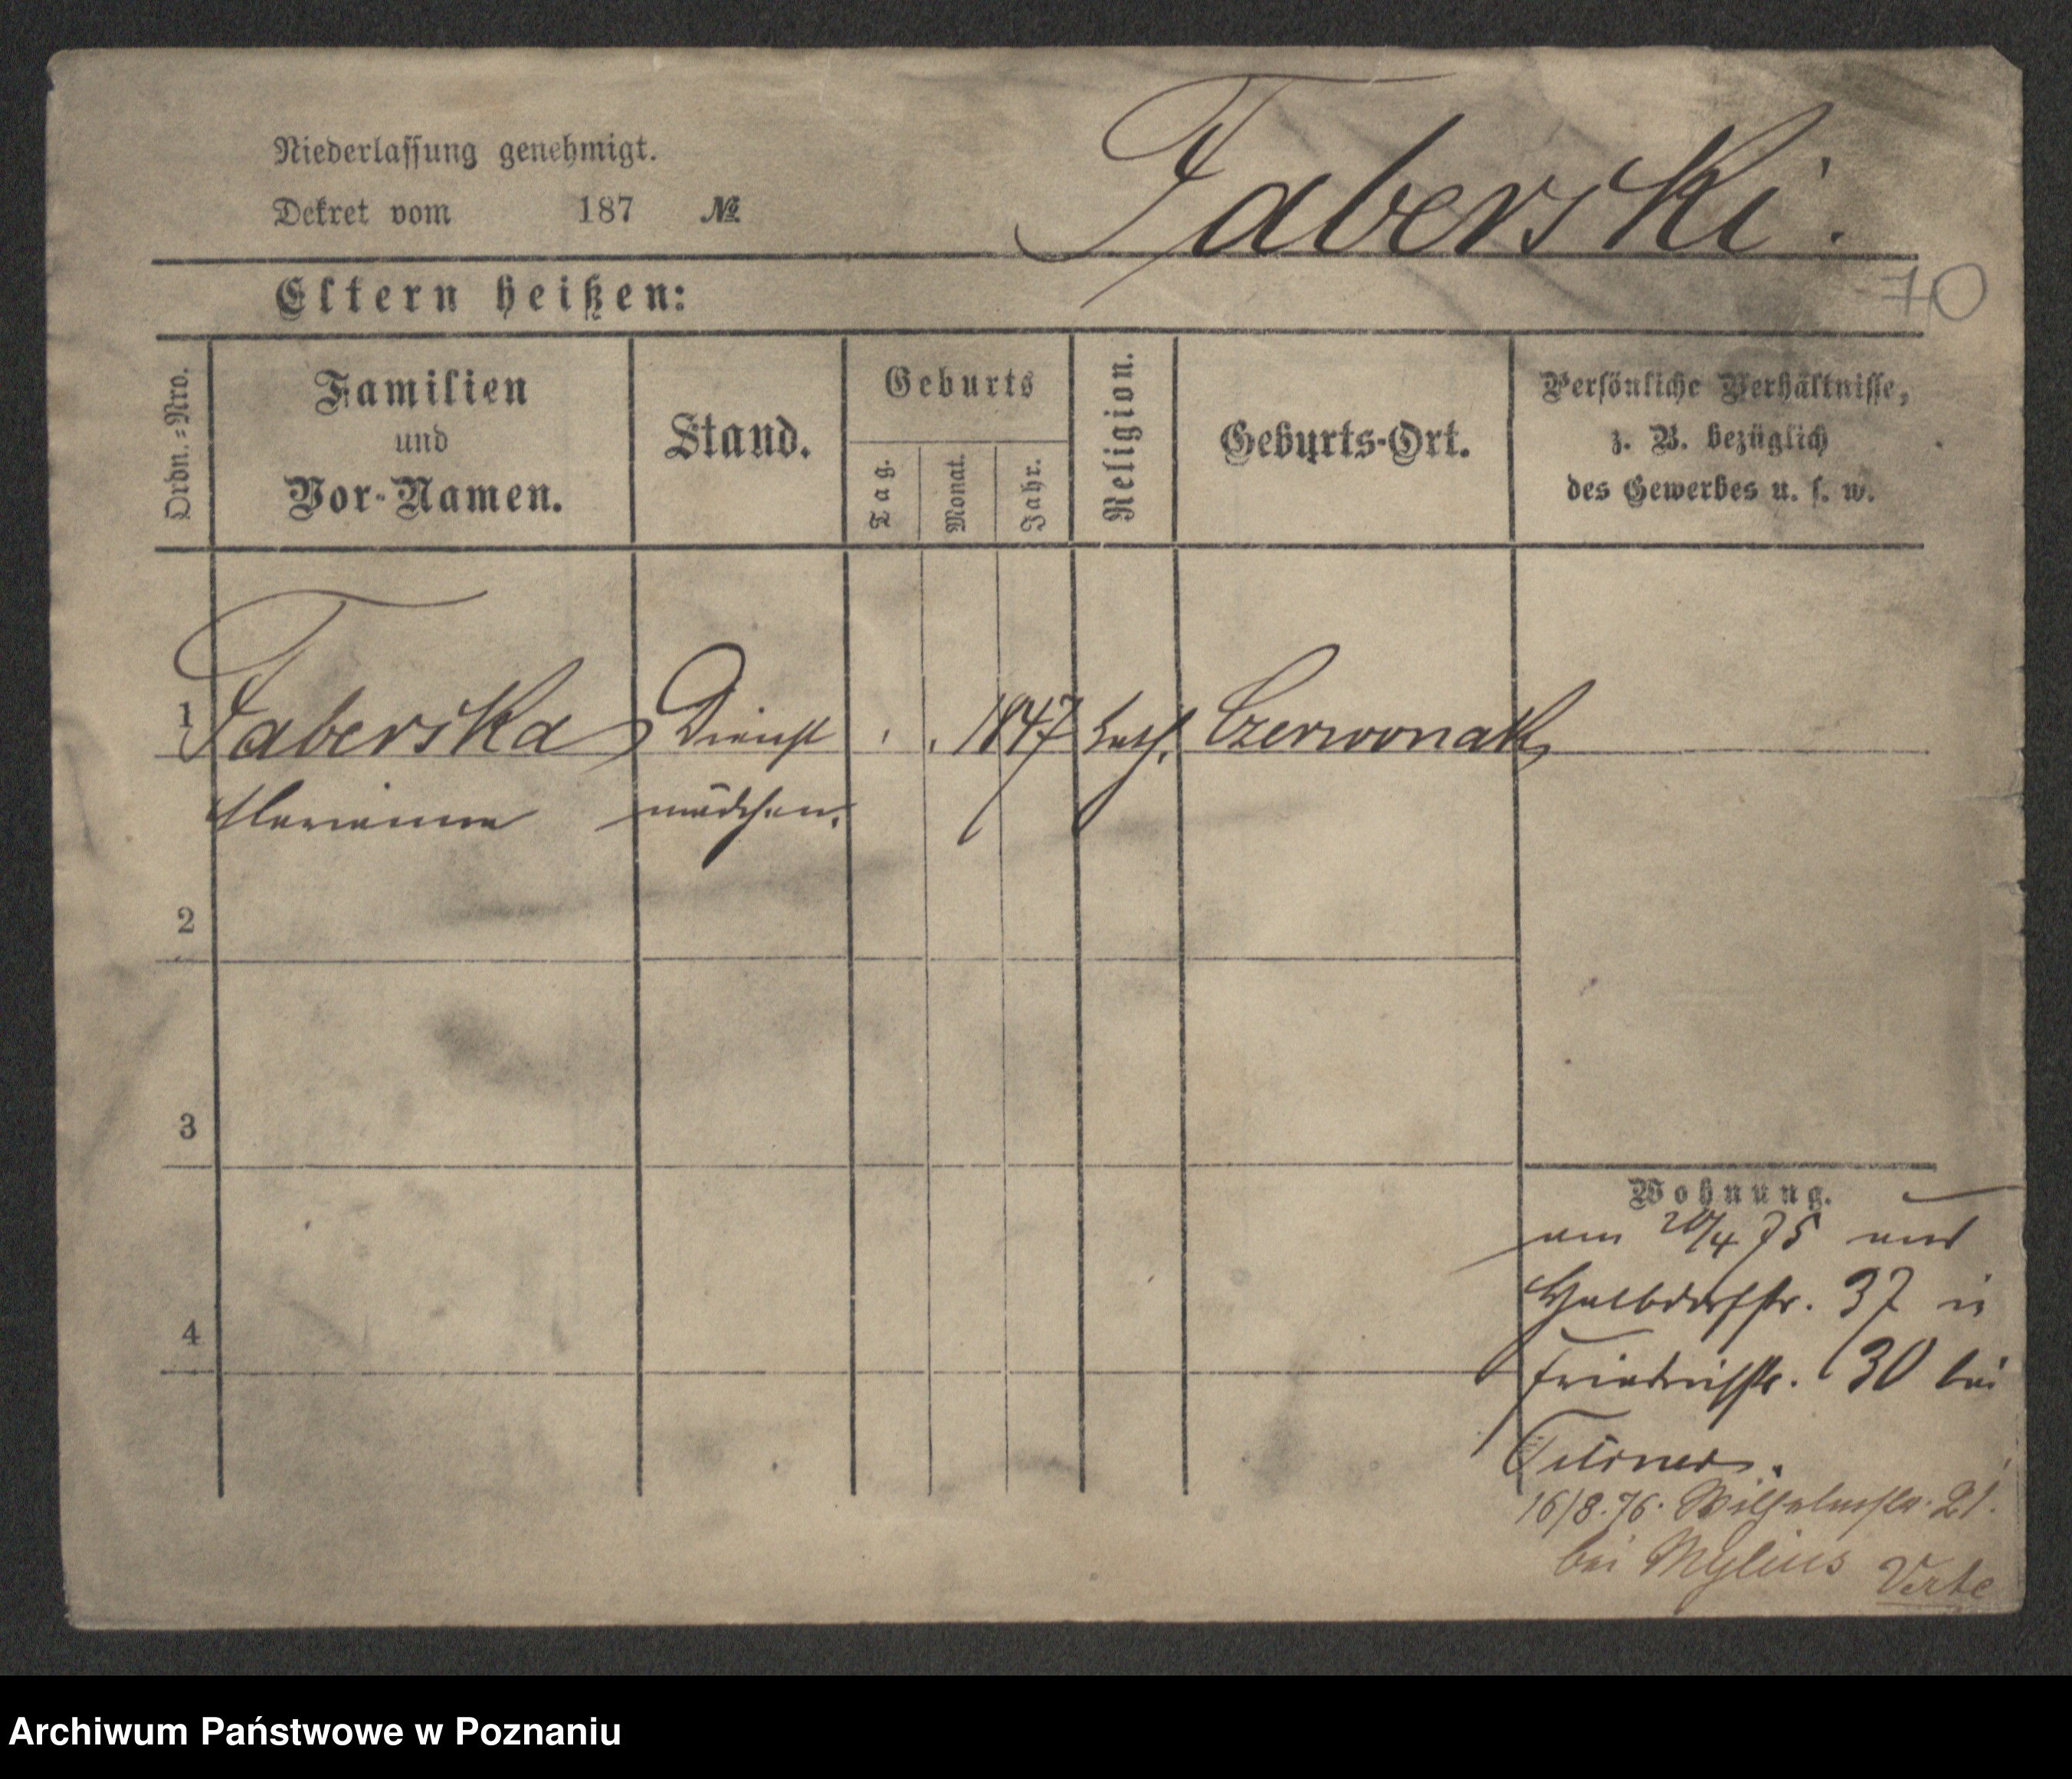 Niederlassung genehmigt.
Dekret vom 187 №
Taberski.
70
Eltern heißen:
Ordn.-Nro.
Familien
und
Vor-Namen.
Stand.
Geburts
Tag.
Monat.
Jahr.
Religion.
Geburts-Ort.
Persönliche Verhältnisse,
z. B. bezüglich
des Gewerbes u. s. w.
1 Taberska Dienst 1847 kath. Czerwonak
Marianna mädchen.
2
3
4
Wohnung.
am 20/4 75 aus
Halbdorfstr. 37 in
Friedrichstr. 30 bei
16/8.76. Wilhelmstr. 21.
bei Mylius Verte
Archiwum Państwowe w Poznaniu